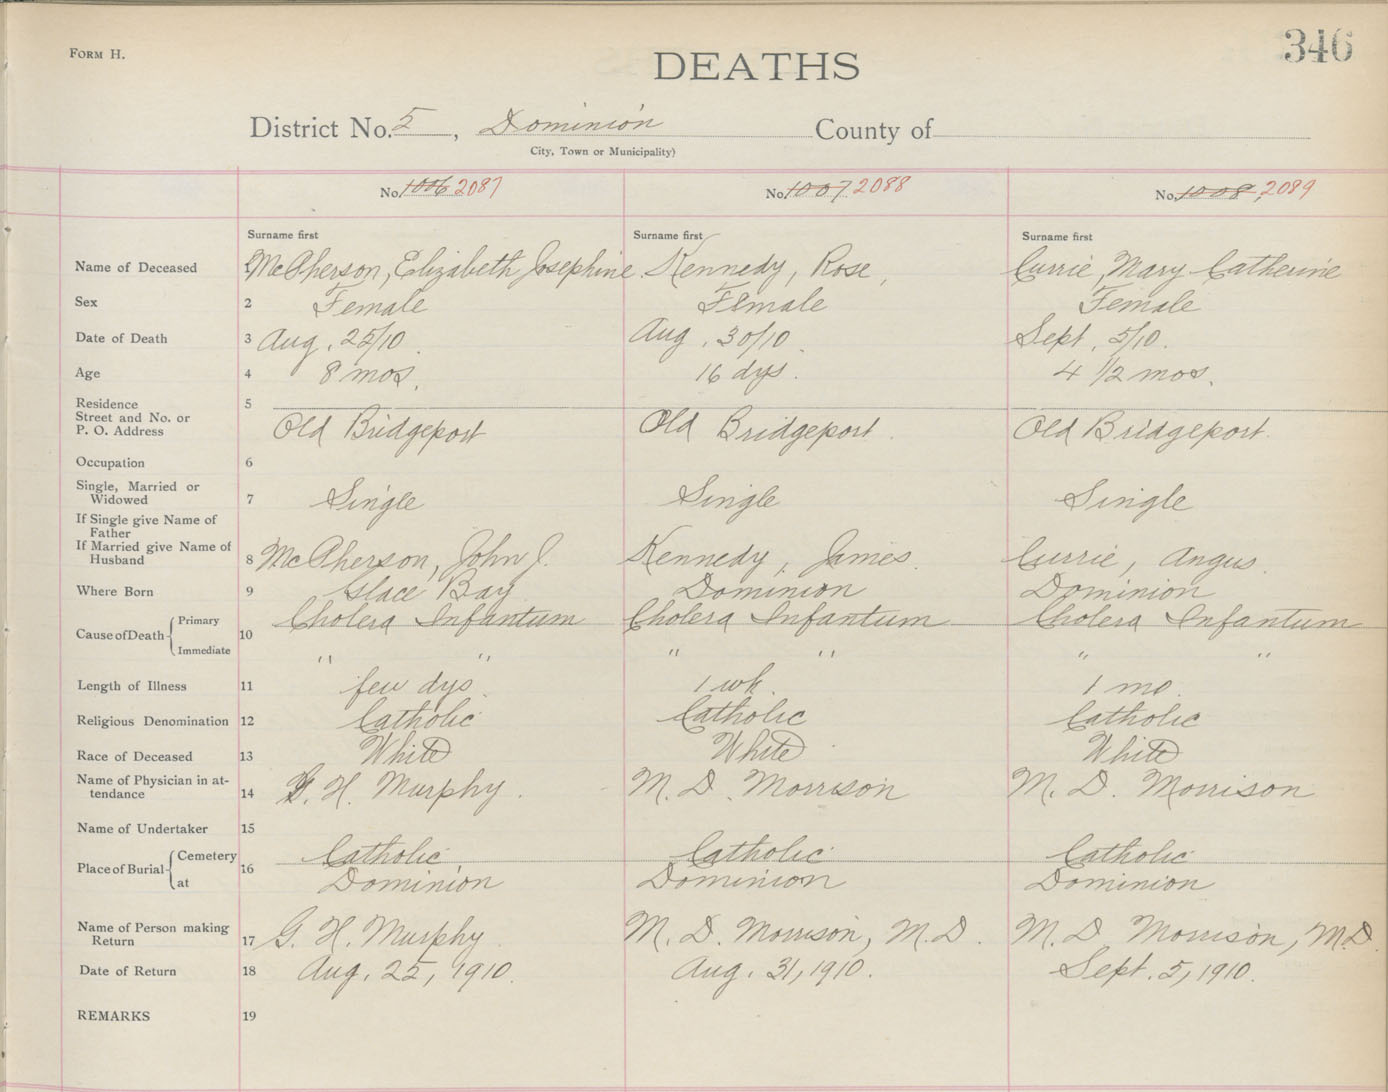 FORM H.
346
DEATHS
District No. 5, Dominion County of
City, Town or Municipality)
No. 1006 2087 No. 1007 2088 No. 1008, 2089
Surname first Surname first Surname first
Name of Deceased 1 McPherson, Elizabeth Josephine Kennedy, Rose, Currie, Mary Catherine
Sex 2 Female Female Female
Date of Death 3 Aug. 25/10 Aug. 30/10. Sept. 5/10.
Age 4 8 mos. 16 dys. 4 1/2 mos.
Residence 5
Street and No. or
P. O. Address Old Bridgeport Old Bridgeport. Old Bridgeport.
Occupation 6
Single, Married or
Widowed 7 Single Single Single
If Single give Name of
Father
If Married give Name of
Husband 8 McPherson, John J. Kennedy, James. Currie, Angus.
Where Born 9 Glace Bay Dominion Dominion
Cause of Death Primary 10 Cholera Infantum Cholera Infantum Cholera Infantum
Immediate " " " " " "
Length of Illness 11 few dys. 1 wk. 1 mo.
Religious Denomination 12 Catholic Catholic Catholic
Race of Deceased 13 White White White
Name of Physician in at-
tendance 14 G. H. Murphy. M. D. Morrison M. D. Morrison
Name of Undertaker 15
Place of Burial Cemetery 16 Catholic, Catholic Catholic
at Dominion Dominion Dominion
Name of Person making
Return 17 G. H. Murphy M. D. Morrison, M.D. M. D. Morrison, M.D.
Date of Return 18 Aug. 25, 1910. Aug. 31, 1910. Sept. 5, 1910.
REMARKS 19